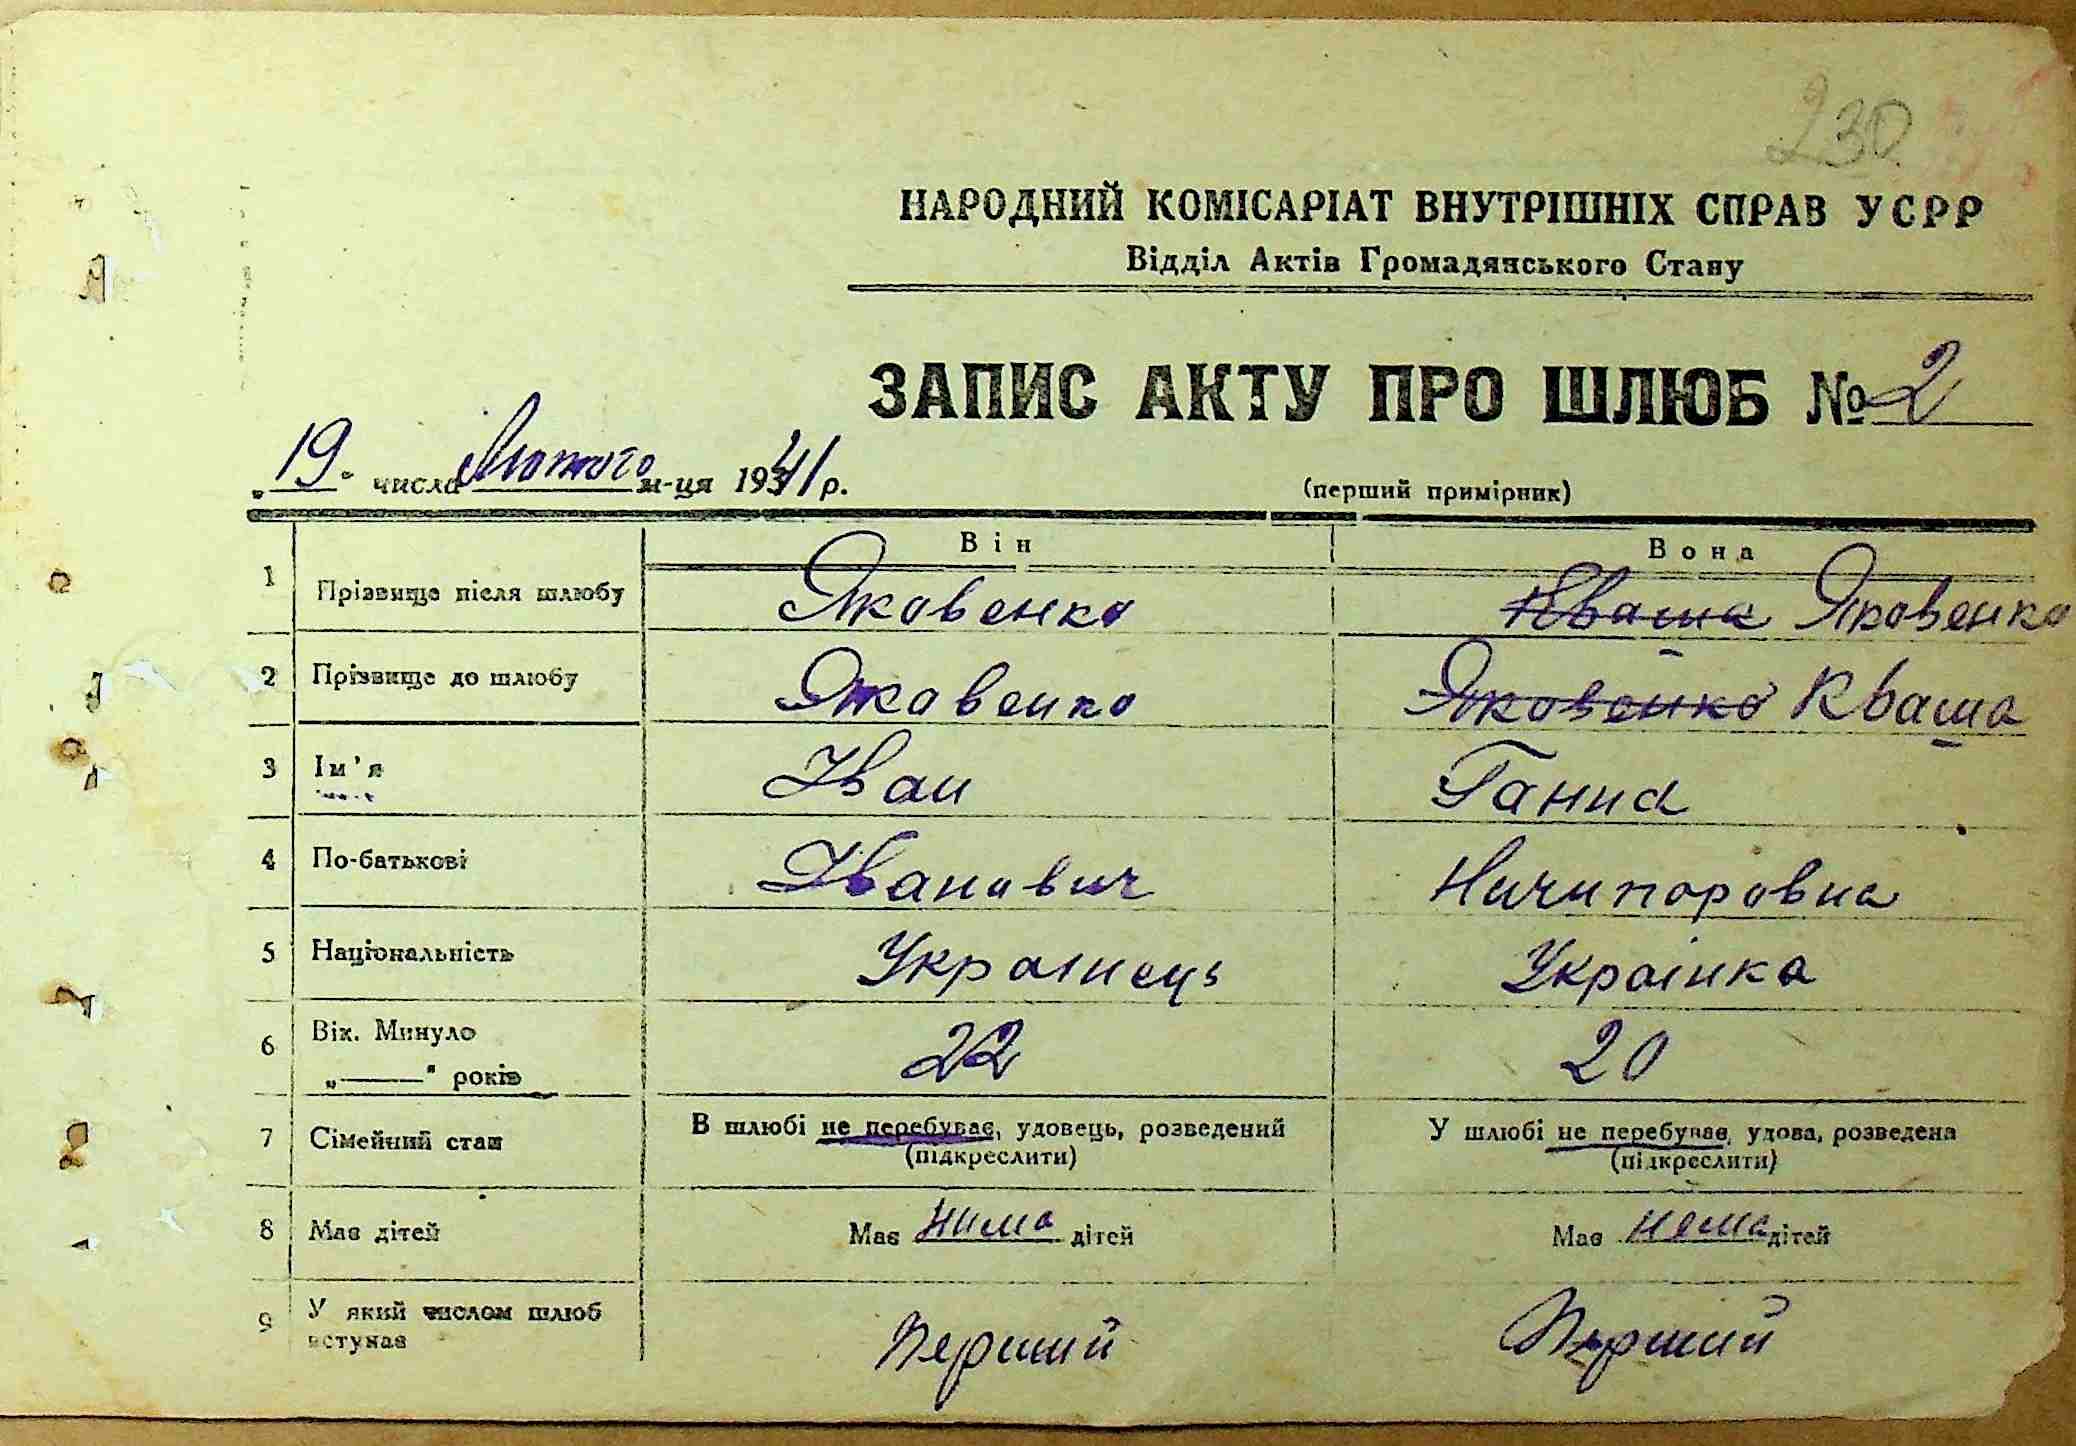 230
НАРОДНИЙ КОМІСАРІАТ ВНУТРІШНІХ СПРАВ УСРР
Відділ Актів Громадянського Стану
ЗАПИС АКТУ ПРО ШЛЮБ № 2
„19" числа Лютого м-ця 1941 р.
(перший примірник)
Він Вона
1 Прізвище після шлюбу Яковенко Кваша Яковенко
2 Прізвище до шлюбу Яковенко Яковенко Кваша
3 Ім'я Іван Ганна
4 По-батькові Іванович Ничипоровна
5 Національність Українець Українка
6 Вік. Минуло 22 20
„——" років
7 Сімейний стан В шлюбі не перебуває, удовець, розведений У шлюбі не перебуває, удова, розведена
(підкреслити) (підкреслити)
8 Має дітей Має нима дітей Має нема дітей
9 У який числом шлюб Перший Перший
вступає